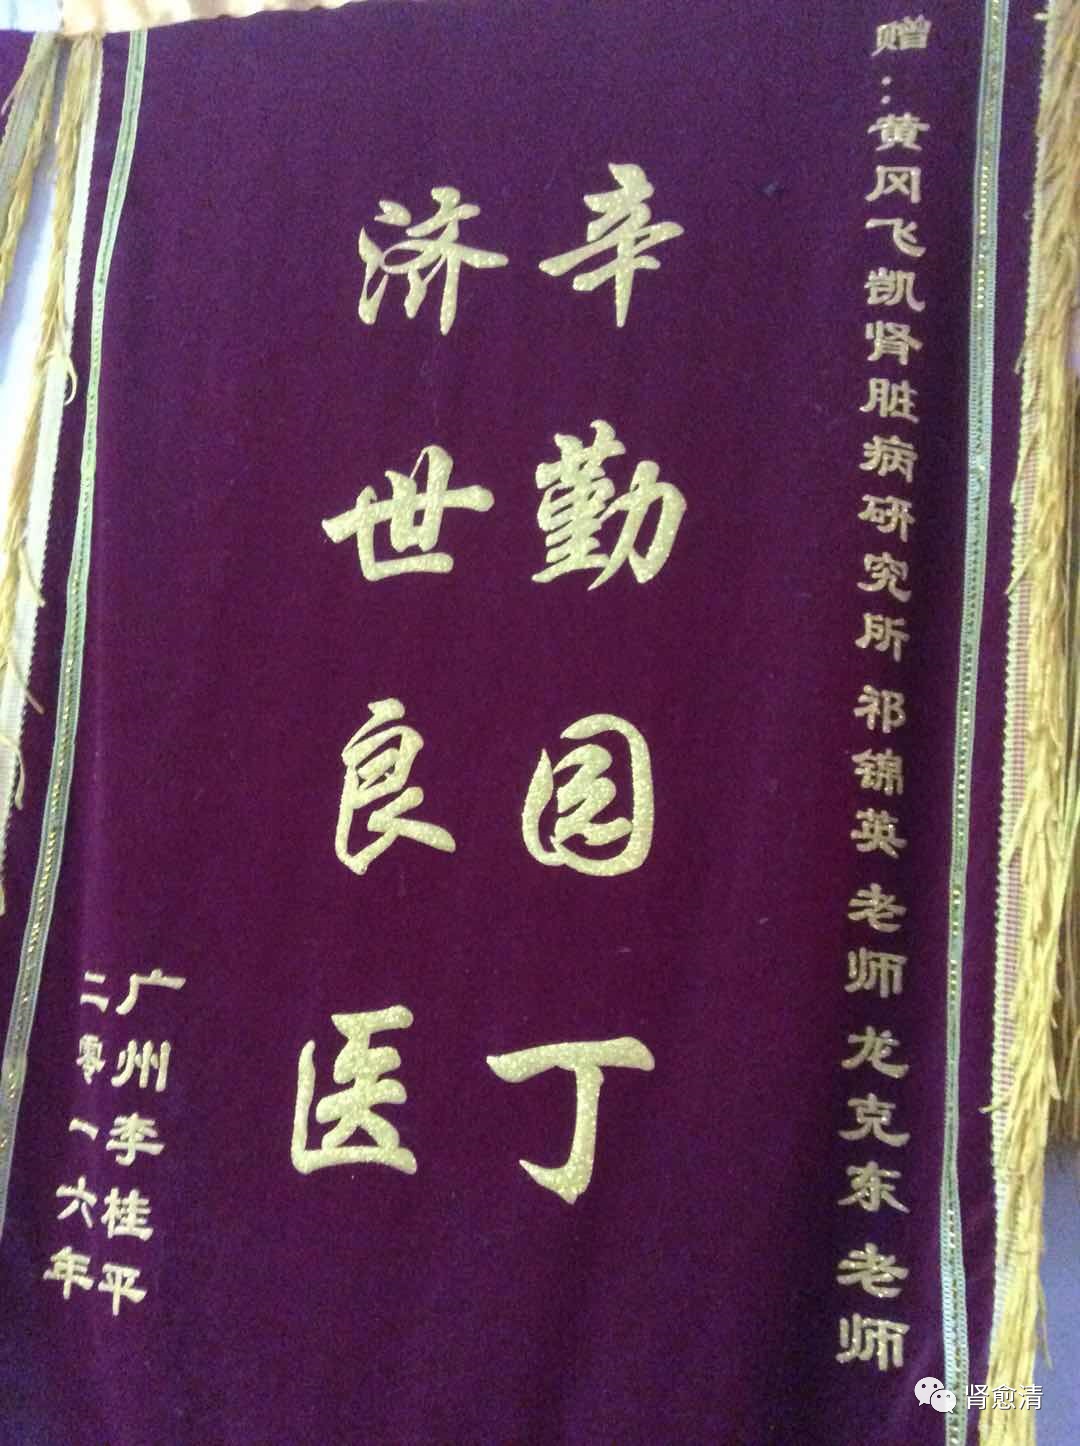 赠：黄冈飞凯肾脏病研究所 祁锦英 老师 龙克东 老师
辛勤园丁
济世良医
广州李桂平
二零一六年
肾愈清